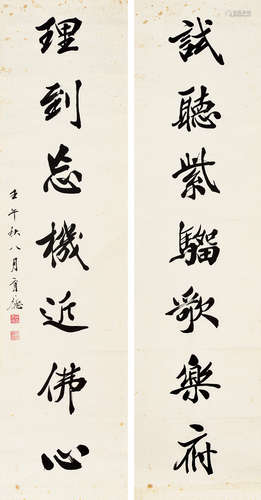 試聽紫騮歌樂府
理到忘機近佛心
壬午秋八月